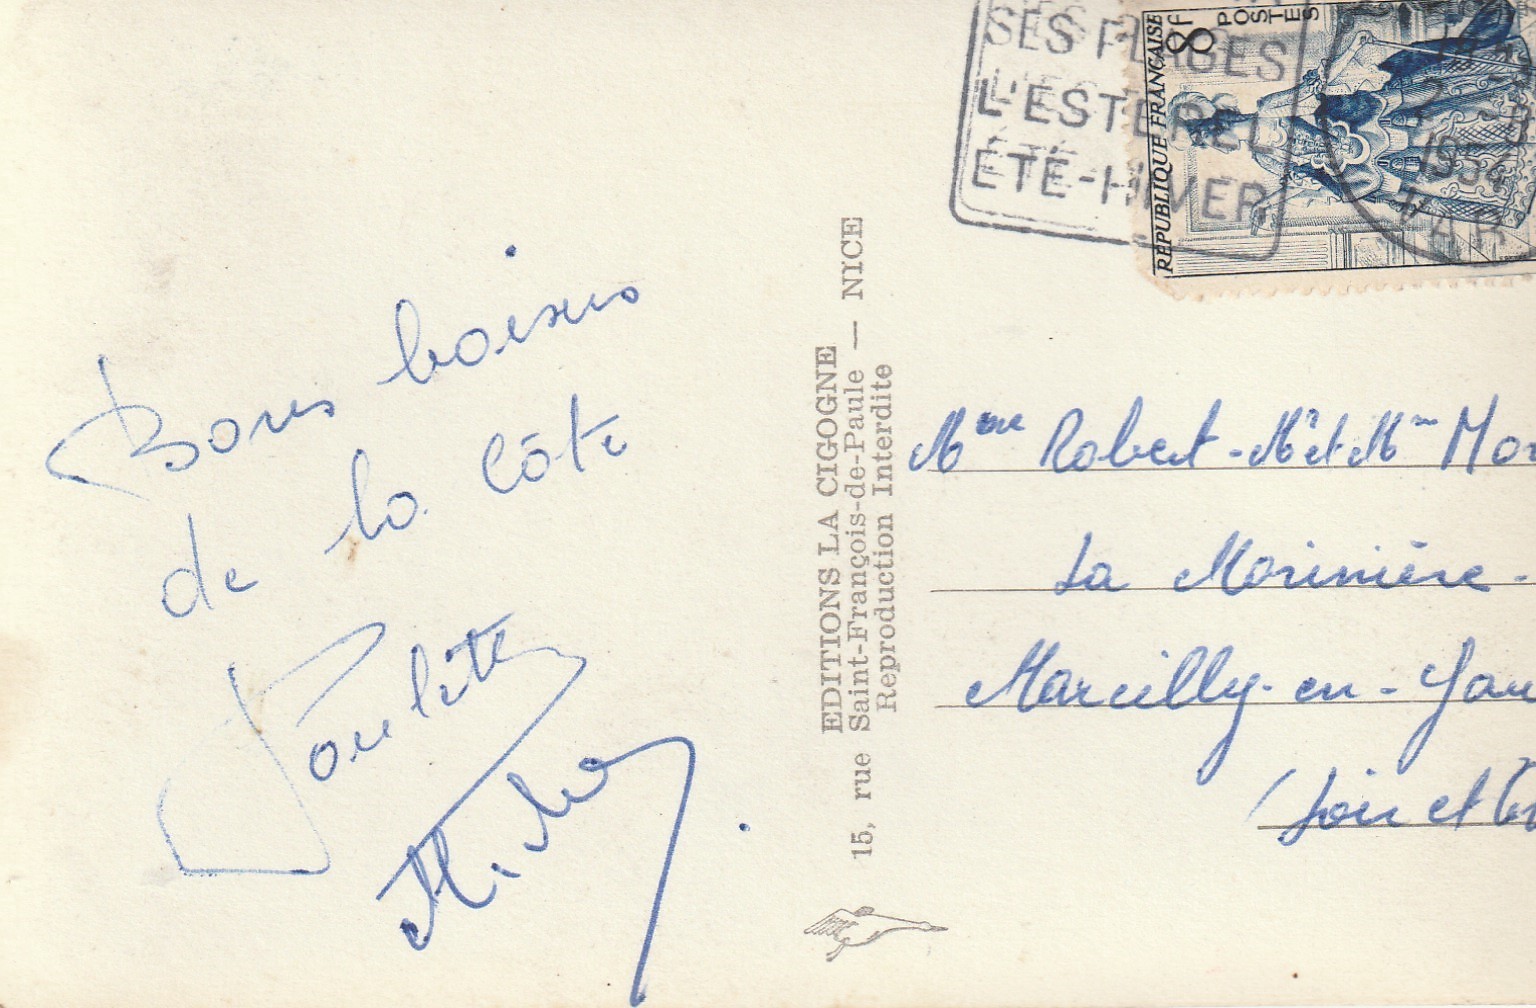 Bons baisers
de la côte
Paulette
SES PLAGES
L'ESTEREL
ÉTÉ-HIVER
REPUBLIQUE FRANÇAISE
8f
POSTES
2
1954
VAR
EDITIONS LA CIGOGNE
15, rue Saint-François-de-Paule — NICE
Reproduction Interdite
Mme Robert - Mr et Mme Mor
La Morinière.
Marcilly-en-Gau
(Loir et